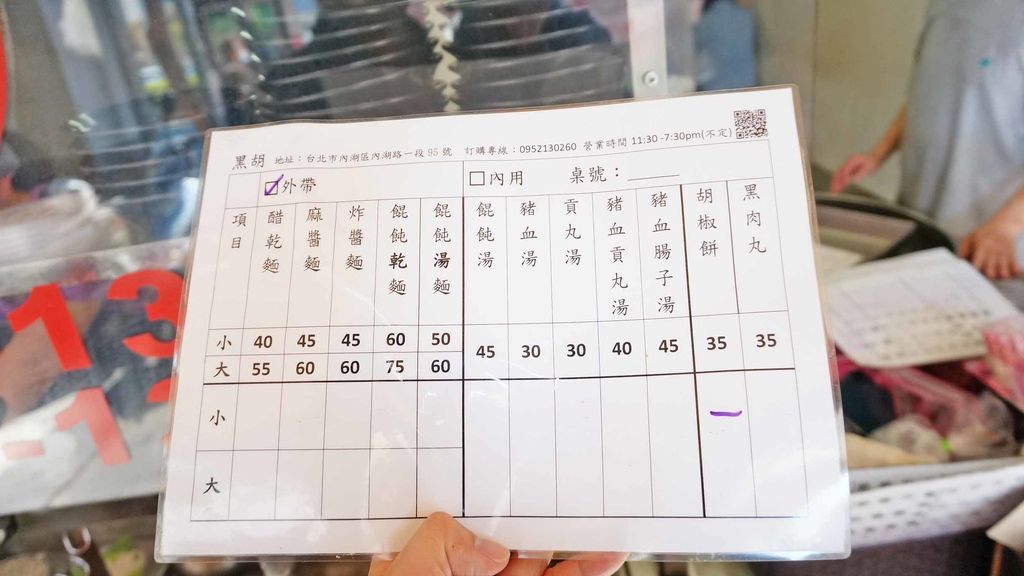 黑胡 地址：台北市內湖區內湖路一段95號 訂購專線：0952130260 營業時間 11:30 -7:30pm(不定)
☑外帶 □內用 桌號：______
項目 醋乾麵 麻醬麵 炸醬麵 餛飩乾麵 餛飩湯麵 餛飩湯 豬血湯 貢丸湯 豬血貢丸湯 豬血腸子湯 胡椒餅 黑肉丸
小 40 45 45 60 50 45 30 30 40 45 35 35
大 55 60 60 75 60
小 一
大
13
-1